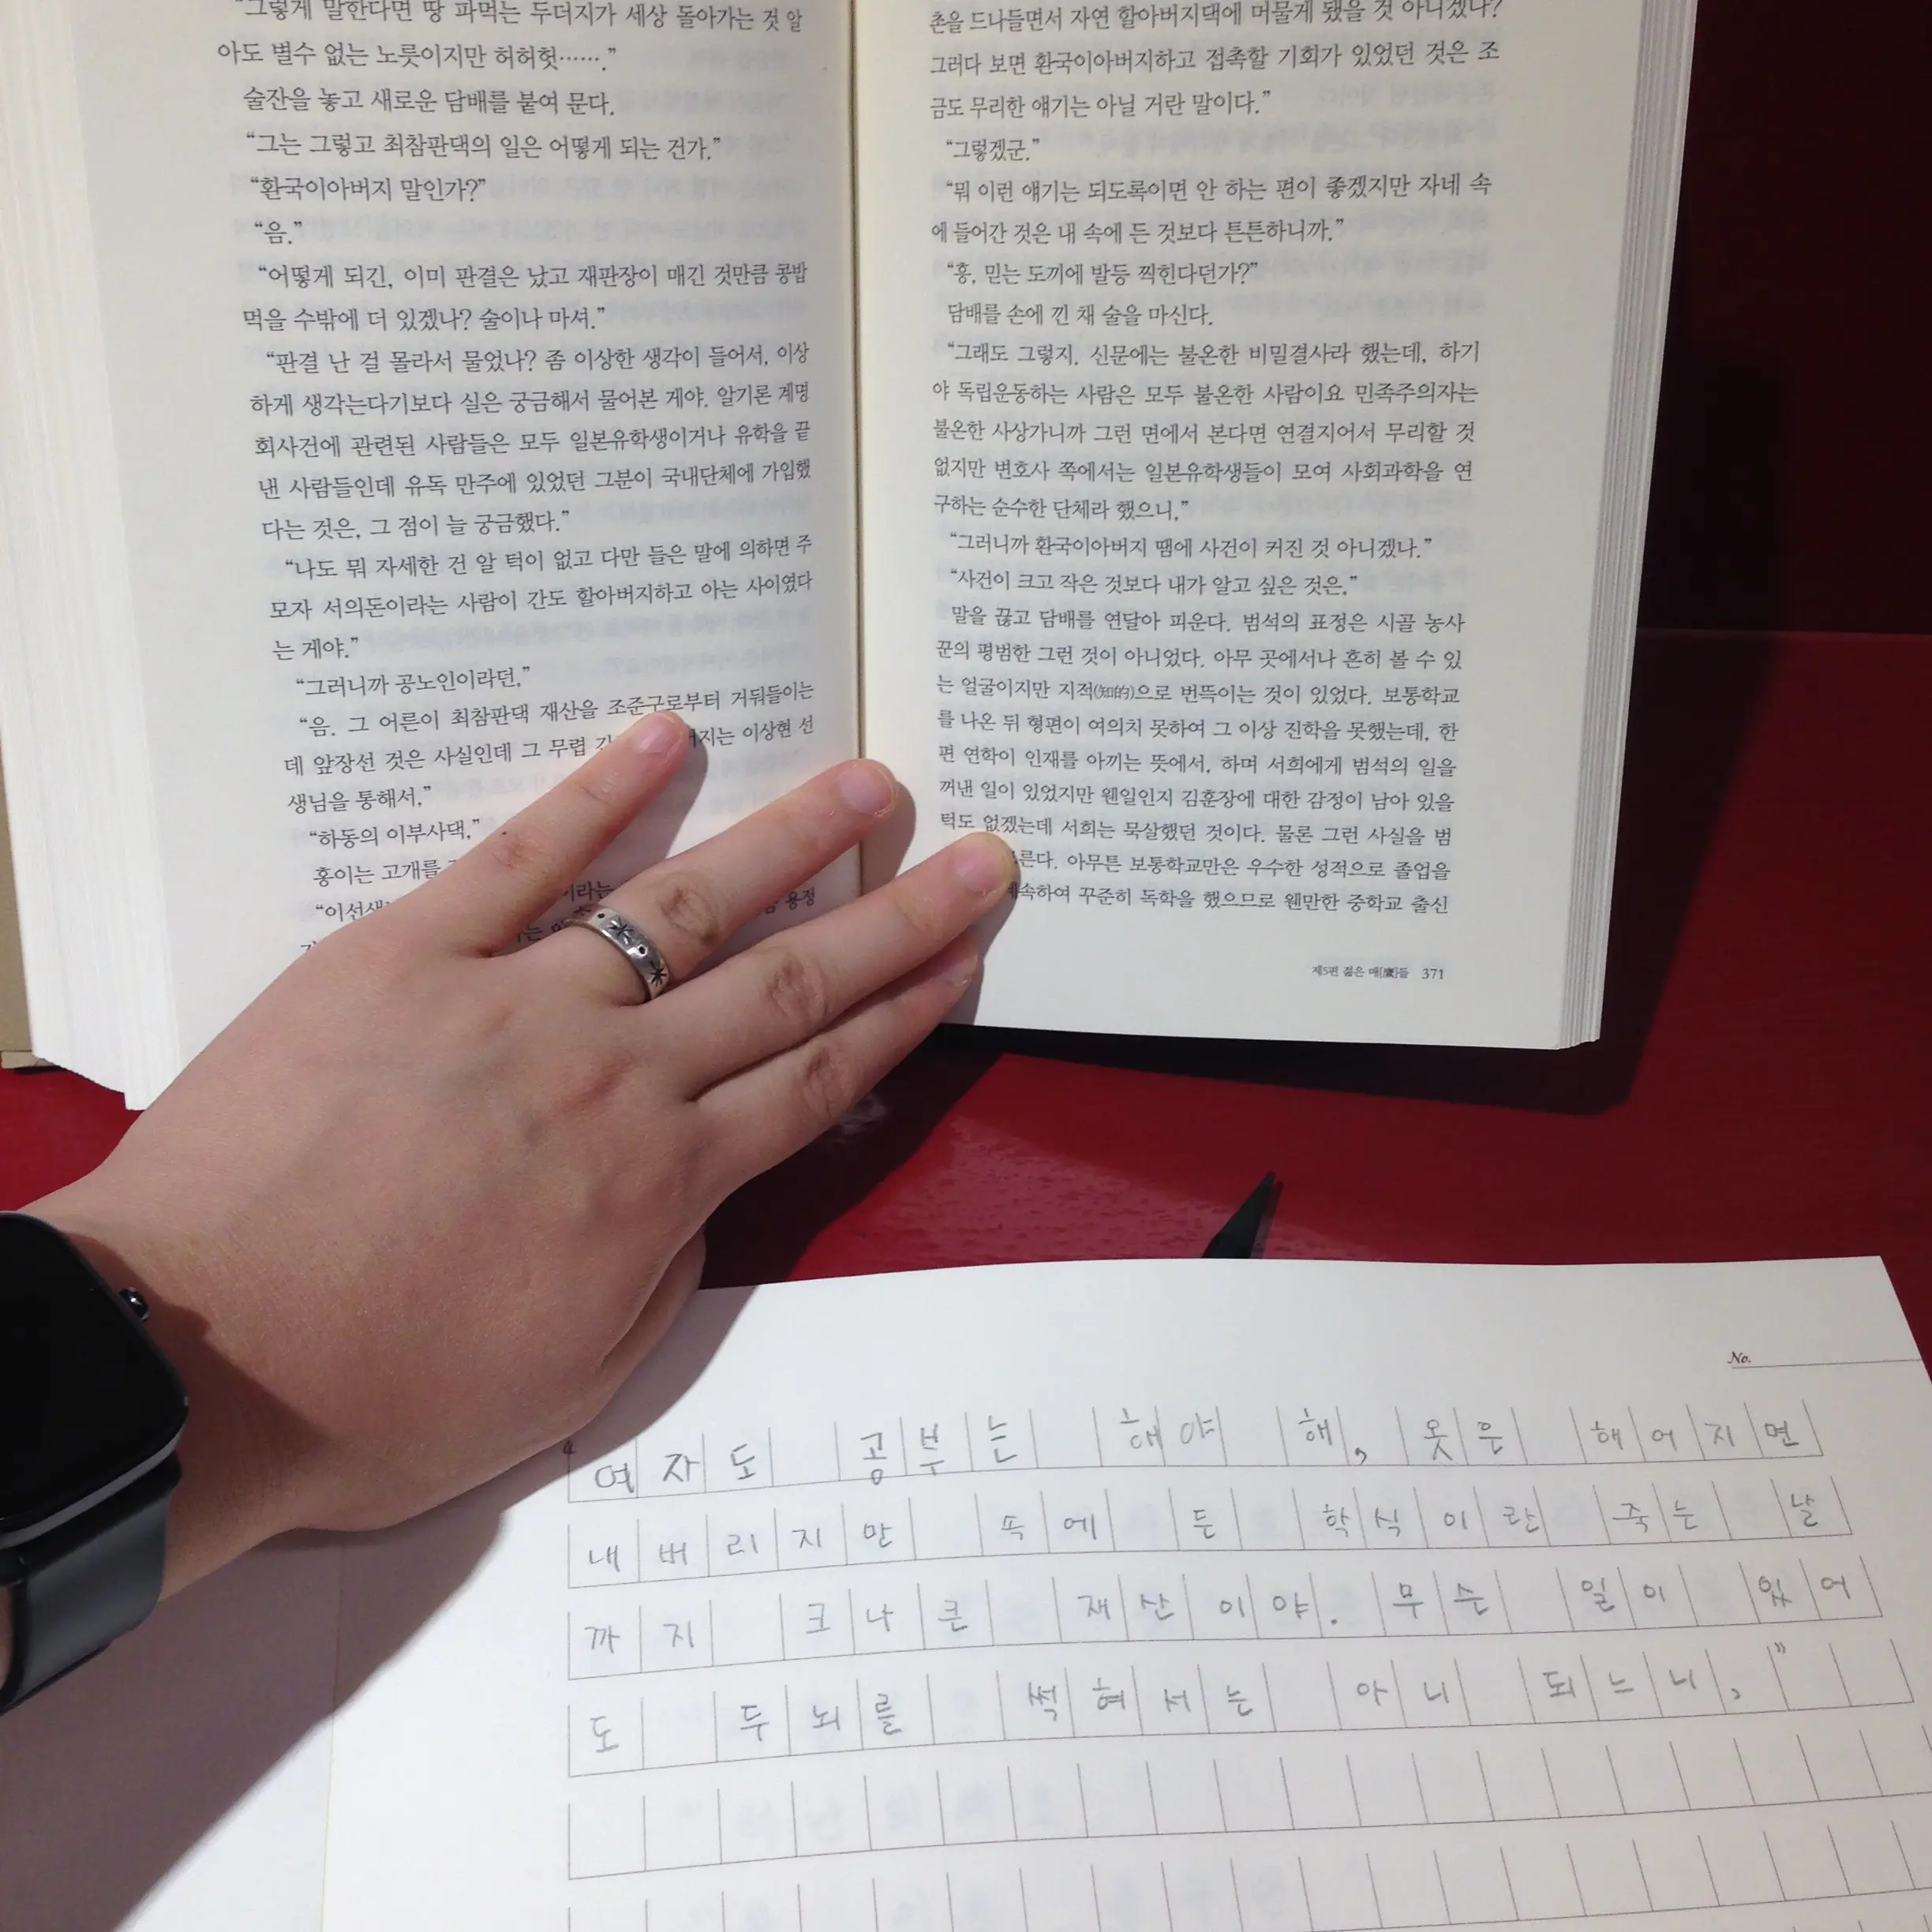 “그렇게 말한다면 땅 파먹는 두더지가 세상 돌아가는 것 알
아도 별수 없는 노릇이지만 허허헛…….”
술잔을 놓고 새로운 담배를 붙여 문다.
“그는 그렇고 최참판댁의 일은 어떻게 되는 건가.”
“환국이아버지 말인가?”
“음.”
“어떻게 되긴, 이미 판결은 났고 재판장이 매긴 것만큼 콩밥
먹을 수밖에 더 있겠나? 술이나 마셔.”
“판결 난 걸 몰라서 물었나? 좀 이상한 생각이 들어서, 이상
하게 생각는다기보다 실은 궁금해서 물어본 게야. 알기론 계명
회사건에 관련된 사람들은 모두 일본유학생이거나 유학을 끝
낸 사람들인데 유독 만주에 있었던 그분이 국내단체에 가입했
다는 것은, 그 점이 늘 궁금했다.”
“나도 뭐 자세한 건 알 턱이 없고 다만 들은 말에 의하면 주
모자 서의돈이라는 사람이 간도 할아버지하고 아는 사이였다
는 게야.”
“그러니까 공노인이라던,”
“음. 그 어른이 최참판댁 재산을 조준구로부터 거둬들이는
데 앞장선 것은 사실인데 그 무렵 이상현 선
생님을 통해서,”
“하동의 이부사댁,”
홍이는 고개를
용정
촌을 드나들면서 자연 할아버지댁에 머물게 됐을 것 아니겠나?
그러다 보면 환국이아버지하고 접촉할 기회가 있었던 것은 조
금도 무리한 얘기는 아닐 거란 말이다.”
“그렇겠군.”
“뭐 이런 얘기는 되도록이면 안 하는 편이 좋겠지만 자네 속
에 들어간 것은 내 속에 든 것보다 튼튼하니까.”
“흥, 믿는 도끼에 발등 찍힌다던가?”
담배를 손에 낀 채 술을 마신다.
“그래도 그렇지. 신문에는 불온한 비밀결사라 했는데, 하기
야 독립운동하는 사람은 모두 불온한 사람이요 민족주의자는
불온한 사상가니까 그런 면에서 본다면 연결지어서 무리할 것
없지만 변호사 쪽에서는 일본유학생들이 모여 사회과학을 연
구하는 순수한 단체라 했으니,”
“그러니까 환국이아버지 땜에 사건이 커진 것 아니겠나.”
“사건이 크고 작은 것보다 내가 알고 싶은 것은,”
말을 끊고 담배를 연달아 피운다. 범석의 표정은 시골 농사
꾼의 평범한 그런 것이 아니었다. 아무 곳에서나 흔히 볼 수 있
는 얼굴이지만 지적(知的)으로 번뜩이는 것이 있었다. 보통학교
를 나온 뒤 형편이 여의치 못하여 그 이상 진학을 못했는데, 한
편 연학이 인재를 아끼는 뜻에서, 하며 서희에게 범석의 일을
꺼낸 일이 있었지만 웬일인지 김훈장에 대한 감정이 남아 있을
턱도 없겠는데 서희는 묵살했던 것이다. 물론 그런 사실을 범
른다. 아무튼 보통학교만은 우수한 성적으로 졸업을
계속하여 꾸준히 독학을 했으므로 웬만한 중학교 출신
제5편 젊은 매[鷹]들 371
No.
“여자도 공부는 해야 해, 옷은 해어지면
내버리지만 속에 든 학식이란 죽는 날
까지 크나큰 재산이야. 무슨 일이 있어
도 두뇌를 썩혀서는 아니 되느니,”